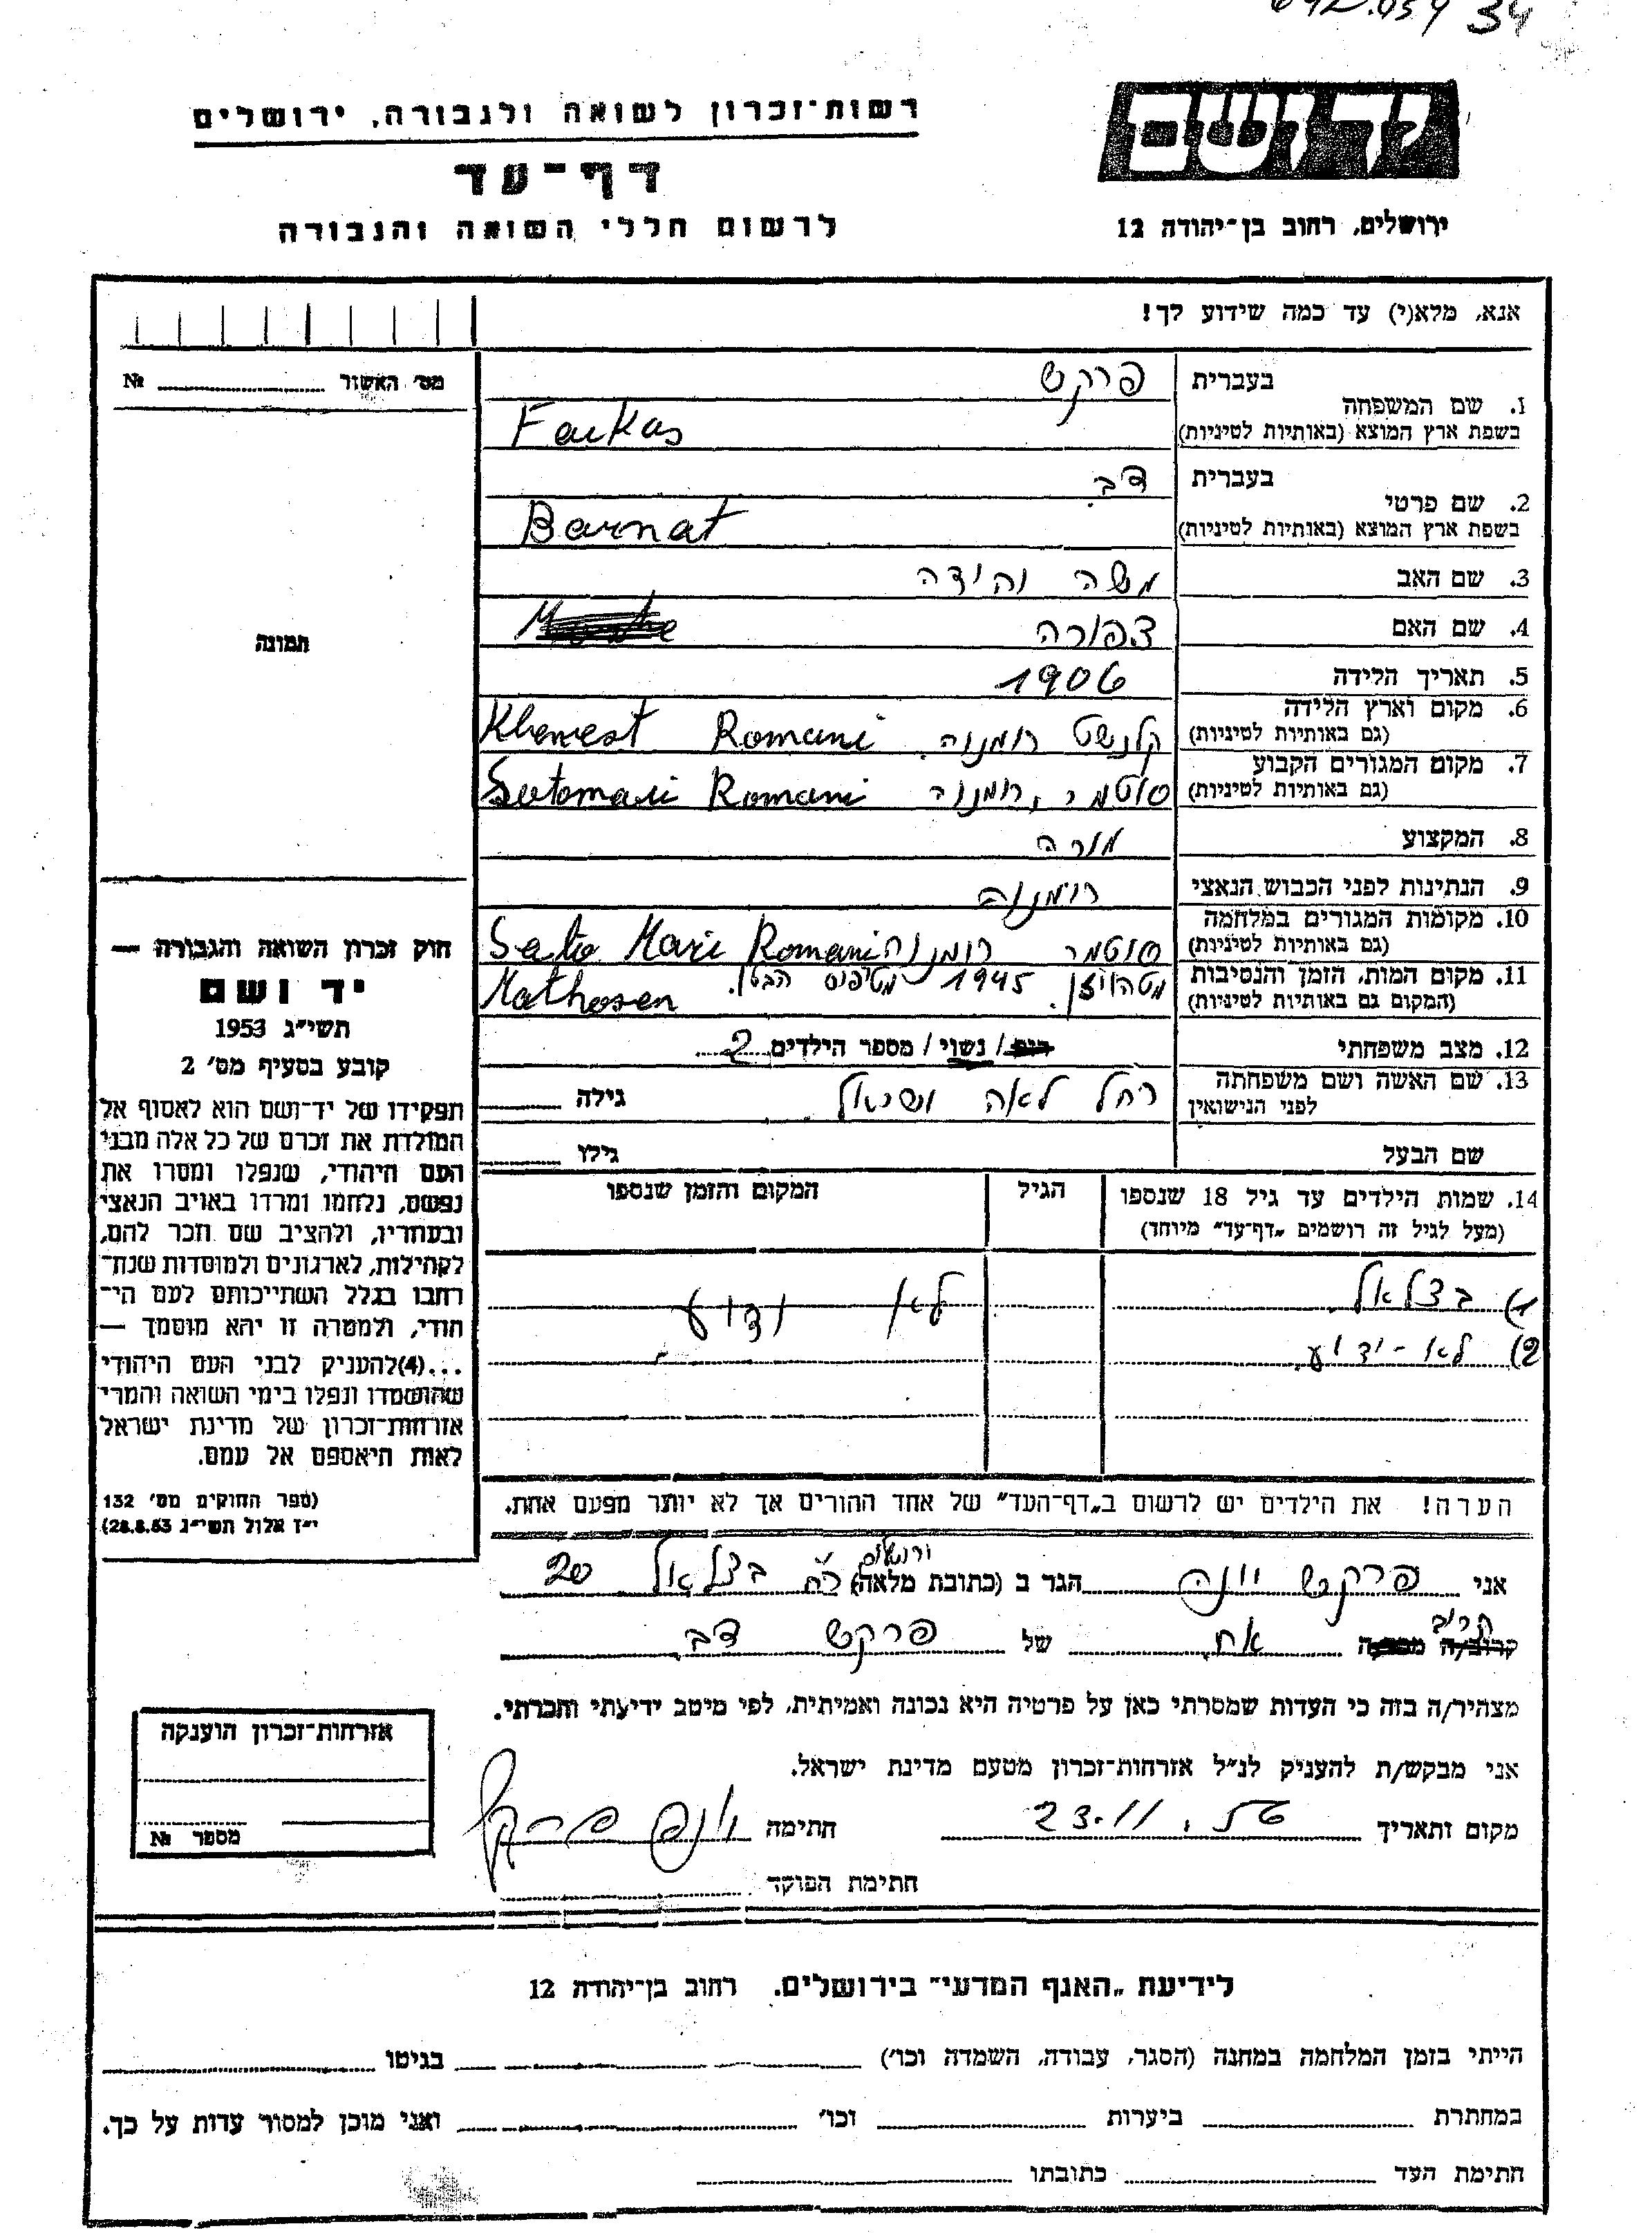 34
רשות־זכרון לשואה ולגבורה, ירושלים
דף־עד
לרשום חללי השואה והגבורה
יד ושם
ירושלים, רחוב בן־יהודה 12
אנא, מלא(י) עד כמה שידוע לך!
מס׳ האשור № 
תמונה
1. שם המשפחה
בעברית פרקש
בשפת ארץ המוצא (באותיות לטיניות) Farkas
2. שם פרטי
בעברית דב
בשפת ארץ המוצא (באותיות לטיניות) Barnat
3. שם האב משה יהודה
4. שם האם צפורה
5. תאריך הלידה 1906
6. מקום וארץ הלידה
(גם באותיות לטיניות) קלנשט רומניה Romani
7. מקום המגורים הקבוע
(גם באותיות לטיניות) סוטמר, רומניה Satomari Romani
8. המקצוע מורה
9. הנתינות לפני הכבוש הנאצי רומניה
10. מקומות המגורים במלחמה
(גם באותיות לטיניות) סוטמר רומניה Sato Mari Romani
11. מקום המות, הזמן והנסיבות
(המקום גם באותיות לטיניות) מטהויזן. 1945 מטיפוס הבטן. Mathosen
12. מצב משפחתי רווק / נשוי / מספר הילדים 2
13. שם האשה ושם משפחתה
לפני הנישואין רחל לאה גילה
שם הבעל גילו
14. שמות הילדים עד גיל 18 שנספו
(מעל לגיל זה רושמים „דף־עד״ מיוחד)
הגיל
המקום והזמן שנספו
1) בצלאל לא ידוע
2) לא - ידוע
הערה! את הילדים יש לרשום ב„דף־העד״ של אחד ההורים אך לא יותר מפעם אחת.
חוק זכרון השואה והגבורה —
יד ושם
תשי״ג 1953
קובע בסעיף מס׳ 2
תפקידו של יד־ושם הוא לאסוף אל
המולדת את זכרם של כל אלה מבני
העם היהודי, שנפלו ומסרו את
נפשם, נלחמו ומרדו באויב הנאצי
ובעוזריו, ולהציב שם וזכר להם,
לקהילות, לארגונים ולמוסדות שנח־
רבו בגלל השתייכותם לעם הי־
הודי, ולמטרה זו יהא מוסמך —
...(4)להעניק לבני העם היהודי
שהושמדו ונפלו בימי השואה והמרי
אזרחות־זכרון של מדינת ישראל
לאות היאספם אל עמם.
(ספר החוקים מס׳ 132
י״ז אלול תשי״ג 28.8.53)
ירושלים
אני פרקש יונה הגר ב (כתובת מלאה) רח׳ בצלאל 20
קרוב
קרוב/ה אח של פרקש דב
מצהיר/ה בזה כי העדות שמסרתי כאן על פרטיה היא נכונה ואמיתית, לפי מיטב ידיעתי והכרתי.
אני מבקש/ת להעניק לנ״ל אזרחות־זכרון מטעם מדינת ישראל.
מקום ותאריך 23.11 חתימה יונה פרקש
חתימת הפוקד
אזרחות־זכרון הוענקה
מספר №
לידיעת „האגף המדעי״ בירושלים. רחוב בן־יהודה 12
הייתי בזמן המלחמה במחנה (הסגר, עבודה, השמדה וכו׳) בגיטו
במחתרת ביערות וכו׳ ואני מוכן למסור עדות על כך.
חתימת העד כתובתו